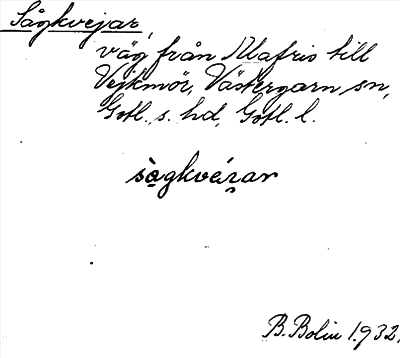 Sågkvejar,
väg från Klafrio till
Vejkmör, Västergarn sn,
Gotl. s. hd, Gotl. l.
sàgkvéɪar
B. Bolin 1932.